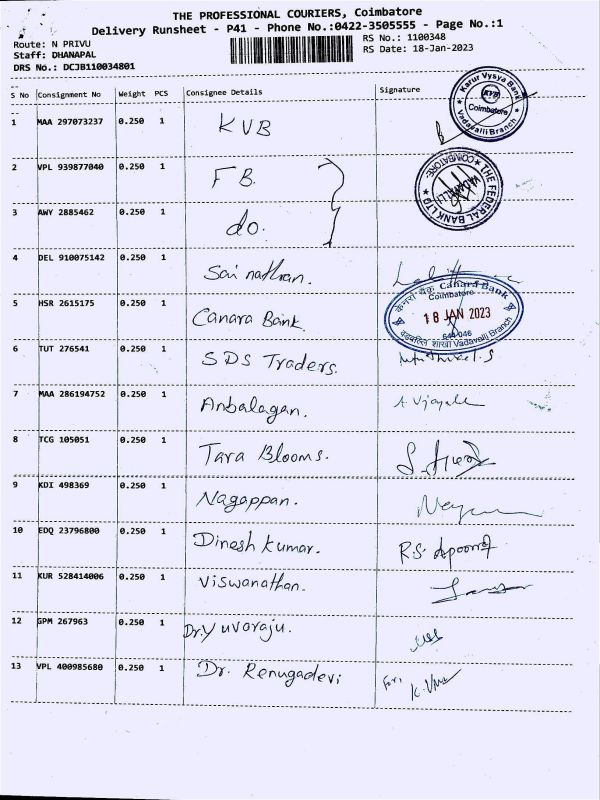 THE PROFESSIONAL COURIERS, Coimbatore
Delivery Runsheet - P41 - Phone No.:0422-3505555 - Page No.:1
Route: N PRIVU
RS No.: 1100348
Staff: DHANAPAL
RS Date: 18-Jan-2023
DRS No.: DCJB110034801
S No Consignment No Weight PCS Consignee Details Signature
1 MAA 297073237 0.250 1 KVB
Karur Vysya Bank KVB Coimbatore Vadavalli Branch
2 VPL 939877040 0.250 1 F B.
THE FEDERAL BANK LTD COIMBATORE
3 AWY 2885462 0.250 1 do.
4 DEL 910075142 0.250 1 Sai nathan.
5 HSR 2615175 0.250 1 Canara Bank
केनरा बैंक Canara Bank
Coimbatore
18 JAN 2023
641 046
शाखा Vadavalli Branch
6 TUT 276541 0.250 1 SDS Traders.
7 MAA 286194752 0.250 1 Anbalagan. A Vijayal
8 TCG 105051 0.250 1 Tara Blooms.
9 KDI 498369 0.250 1 Nagappan.
10 EDQ 23796800 0.250 1 Dinesh kumar. R.S.
11 KUR 528414006 0.250 1 Viswanathan.
12 GPM 267963 0.250 1 Dr.Yuvaraju.
13 VPL 400985680 0.250 1 Dr. Renugadevi For,